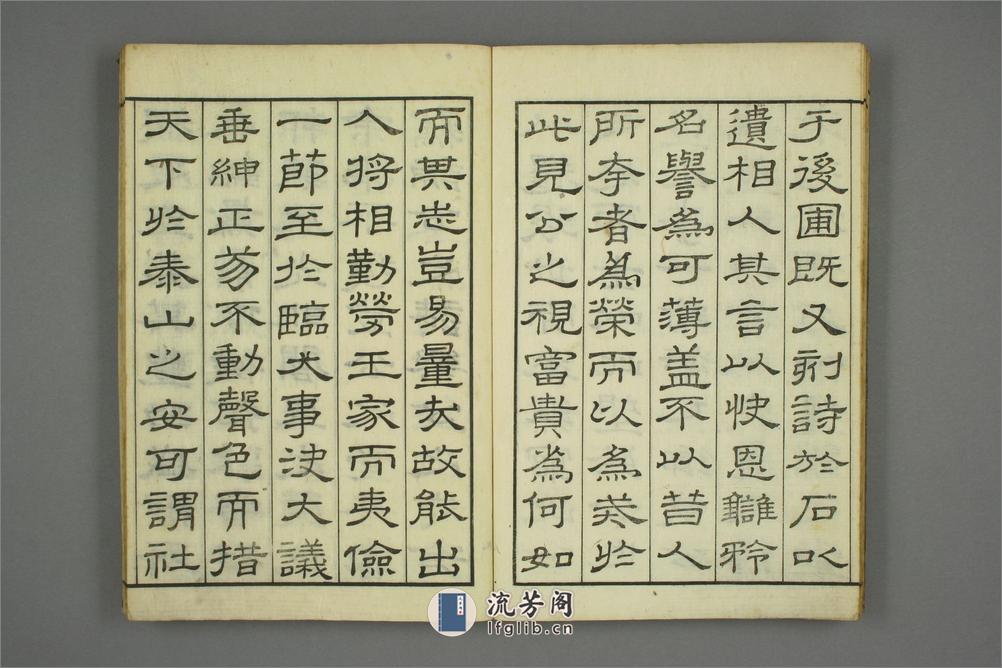 于後圃既又刻詩於石以
遺相人其言以快恩讎矜
名譽為可薄盖不以昔人
所夸者為榮而以為戒於
此見公之視富貴為何如
而其志豈易量哉故能出
入將相勤勞王家而夷儉
一節至於臨大事決大議
垂紳正笏不動聲色而措
天下於泰山之安可謂社
流芳阁
lfglib.cn